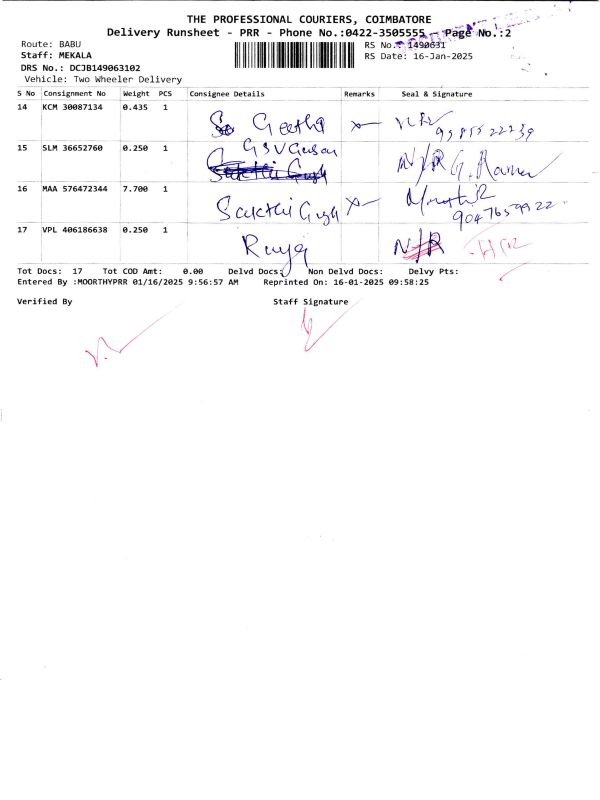 THE PROFESSIONAL COURIERS, COIMBATORE
Delivery Runsheet - PRR - Phone No.:0422-3505555 Page No.:2
Route: BABU
RS No.: 1490631
Staff: MEKALA
RS Date: 16-Jan-2025
DRS No.: DCJB149063102
Vehicle: Two Wheeler Delivery
S No Consignment No Weight PCS Consignee Details Remarks Seal & Signature
14 KCM 30087134 0.435 1 Geetha
9585522239
15 SLM 36652760 0.250 1 N/R G. Raman
16 MAA 576472344 7.700 1 Sakthi
17 VPL 406186638 0.250 1 N/R
Tot Docs: 17 Tot COD Amt: 0.00 Delvd Docs: Non Delvd Docs: Delvy Pts:
Entered By :MOORTHYPRR 01/16/2025 9:56:57 AM Reprinted On: 16-01-2025 09:58:25
Verified By Staff Signature